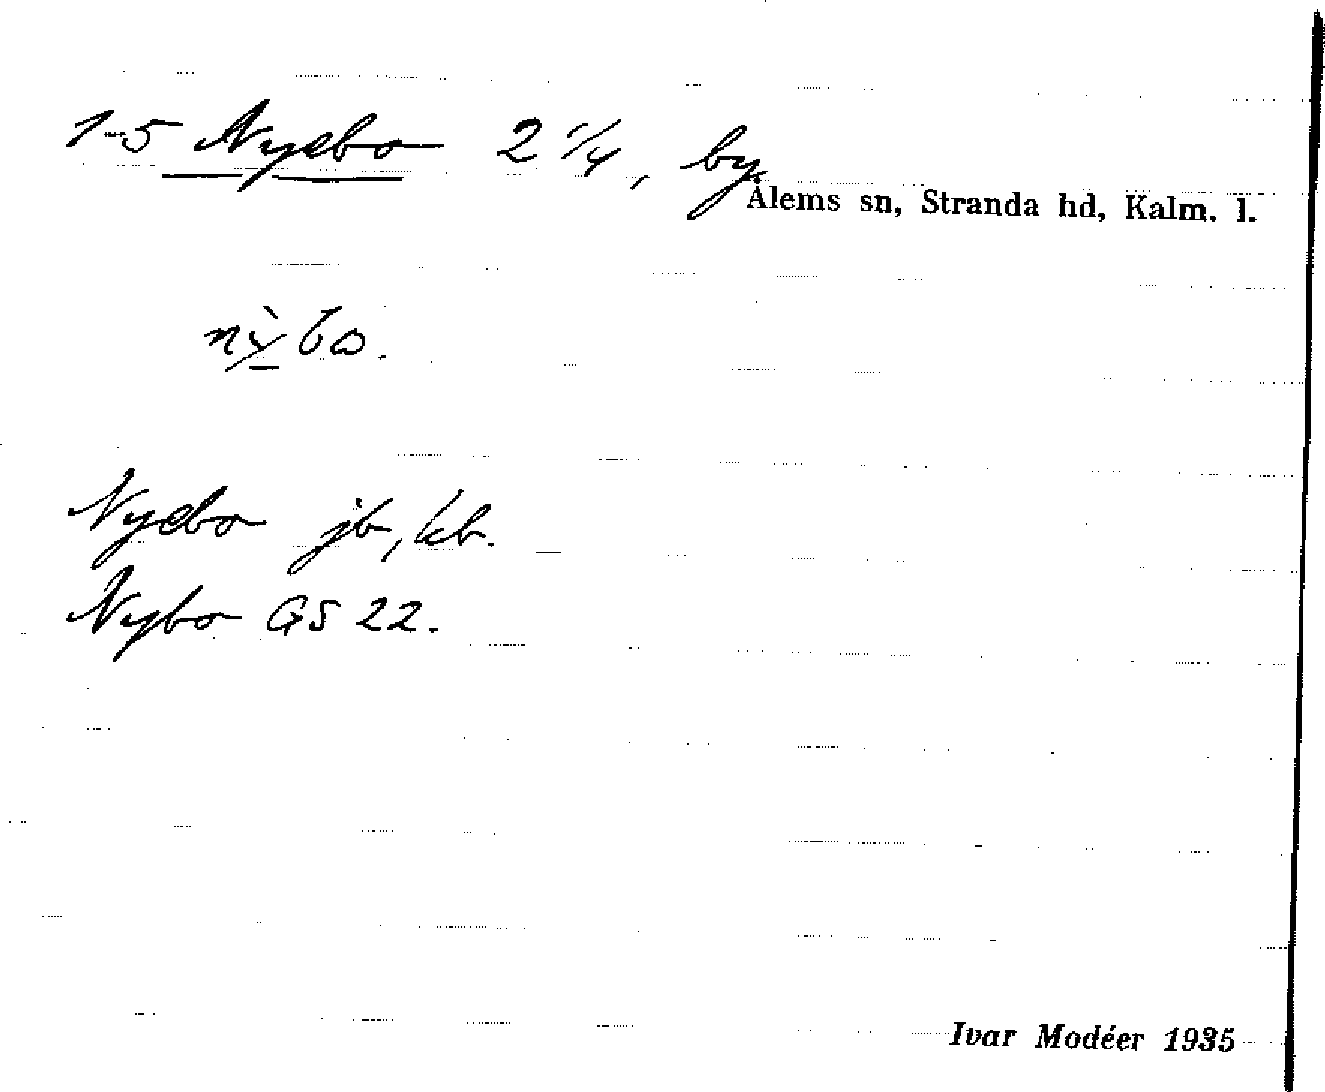 1-5 Nyebo 2 1/4, by.
Ålems sn, Stranda hd, Kalm. l.
Nyebo jb, kb.
Nybo GS 22.
Ivar Modéer 1935